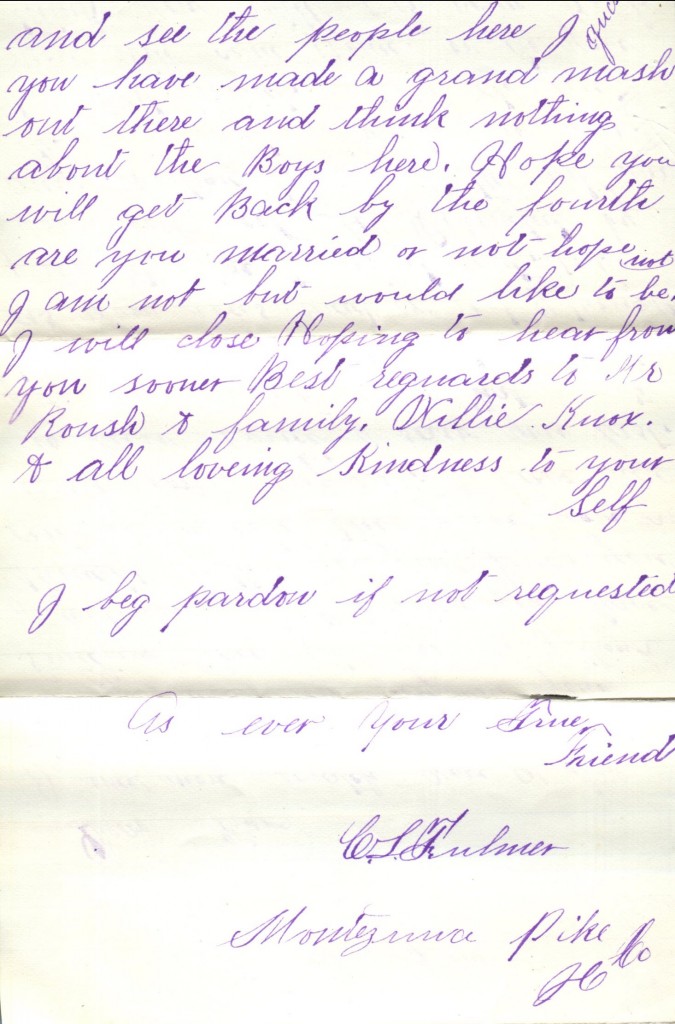 and see the people here I guess
you have made a grand mash
out there and think nothing
about the Boys here. Hope you
will get Back by the fourth
are you married or not hope not
I am not but would like to be.
I will close Hoping to hear from
you sooner Best reguards to Mr
Roush & family. Willie Knox.
& all loveing Kindness to your
Self
I beg pardon if not requested
As ever Your True
Friend
C.L. Fulmer
Montezuma Pike Co